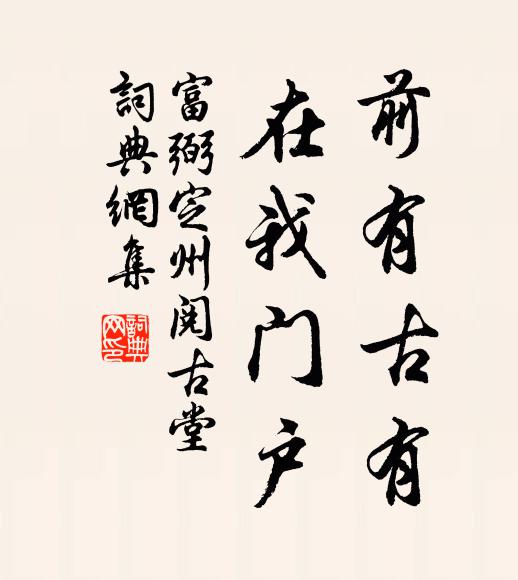 前有古有
在我门户
富弼定州阅古堂
詞典網集
詞典網印